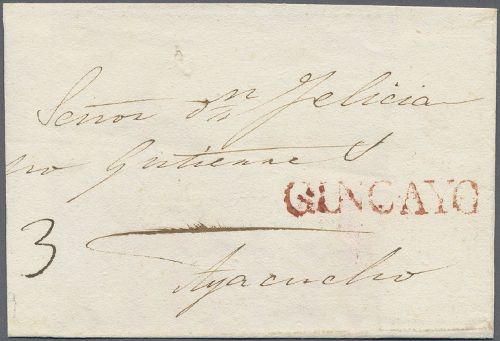 Señor dn Felicia
no Gutierrez
GINCAYO
3
Ayacucho